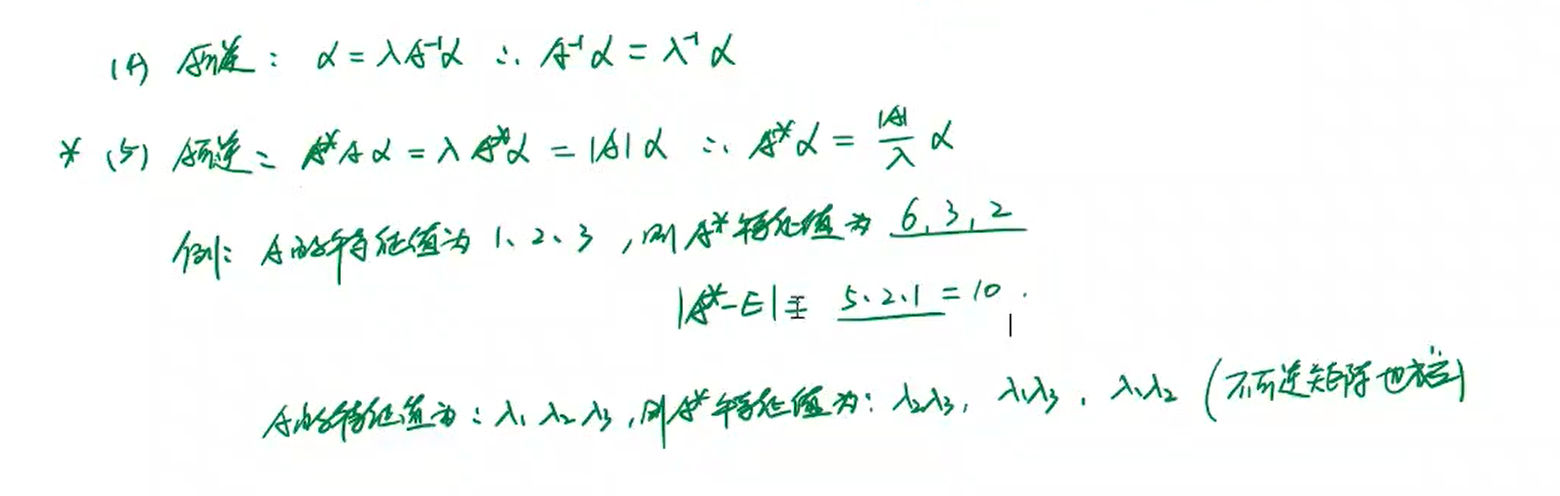 (4) A可逆: α = λA⁻¹α ∴ A⁻¹α = λ⁻¹α
* (5) A可逆: A*Aα = λA*α = |A|α ∴ A*α = |A|/λ α
例: A的特征值为 1、2、3 ,则A*特征值为 6, 3, 2
|A*-E| = 5·2·1 = 10 .
A的特征值为: λ₁ λ₂ λ₃ ,则A*特征值为: λ₂λ₃, λ₁λ₃, λ₁λ₂ (不可逆矩阵也符合)